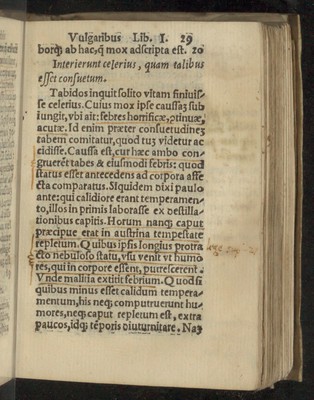 Vulgaribus Lib. I. 29
borq̃ ab hac, q̃ mox adscripta est. 20
Interierunt celerius, quam talibus
esset consuetum.
Tabidos inquit solito vitam finiuis-
se celerius. Cuius mox ipse caussaʒ sub
iungit, vbi ait: febres horrificæ, ꝯtinuæ,
acutæ. Id enim præter consuetudineʒ
tabem comitatur, quod tuʒ videtur ac
cidisse. Caussa est, cur hæc ambo con-
gruerēt tabes & eiusmodi febris: quod
status esset antecedens ad corpora affe
cta comparatus. Siquidem dixi paulo
ante: qui calidiore erant temperamen-
to, illos in primis laborasse ex destilla-
tionibus capitis. Horum nanq̃ caput
præcipue erat in austrina tempestate
repletum. Quibus ipsis longius protra
cto nebuloso statu, vsu venit vt humo
res, qui in corpore essent, putrescerent.
Vnde malitia extitit febrium. Quod si
quibus minus esset calidum tempera-
mentum, his neq̃ computruerunt hu-
mores, neq̃ caput repletum est, extra
paucos, idq̃ tēporis diuturnitate. Naʒ